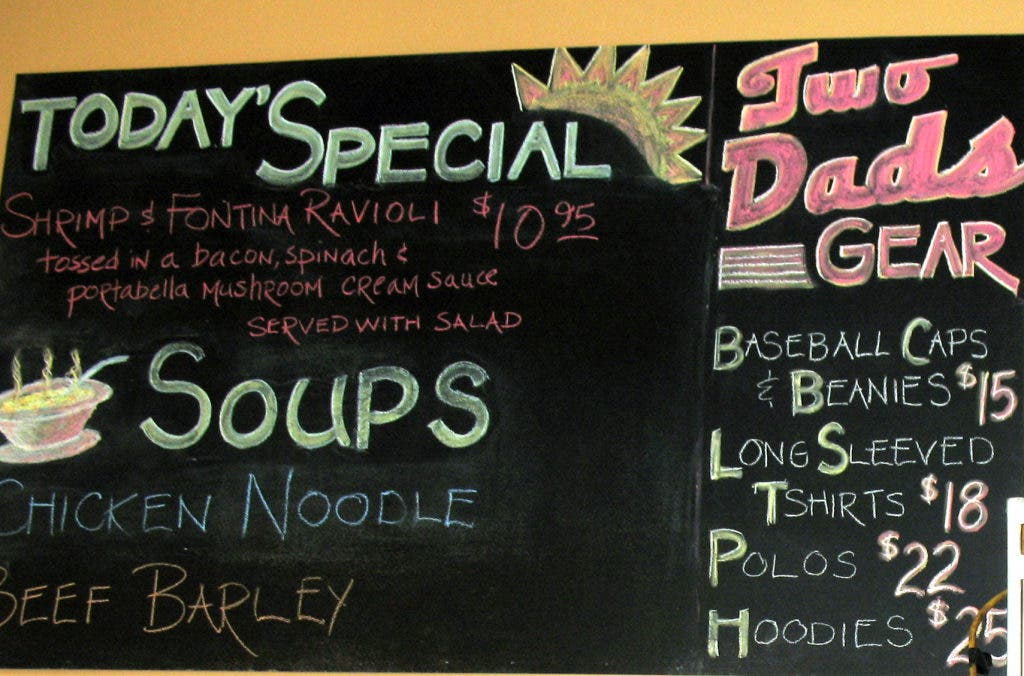 TODAY'S SPECIAL
SHRIMP & FONTINA RAVIOLI $10.95
tossed in a bacon, spinach &
portabella MUSHROOM CREAM sauce
SERVED WITH SALAD
SOUPS
CHICKEN NOODLE
BEEF BARLEY
Two
Dads
GEAR
BASEBALL CAPS
& BEANIES $15
LONG SLEEVED
TSHIRTS $18
POLOS $22
HOODIES $25